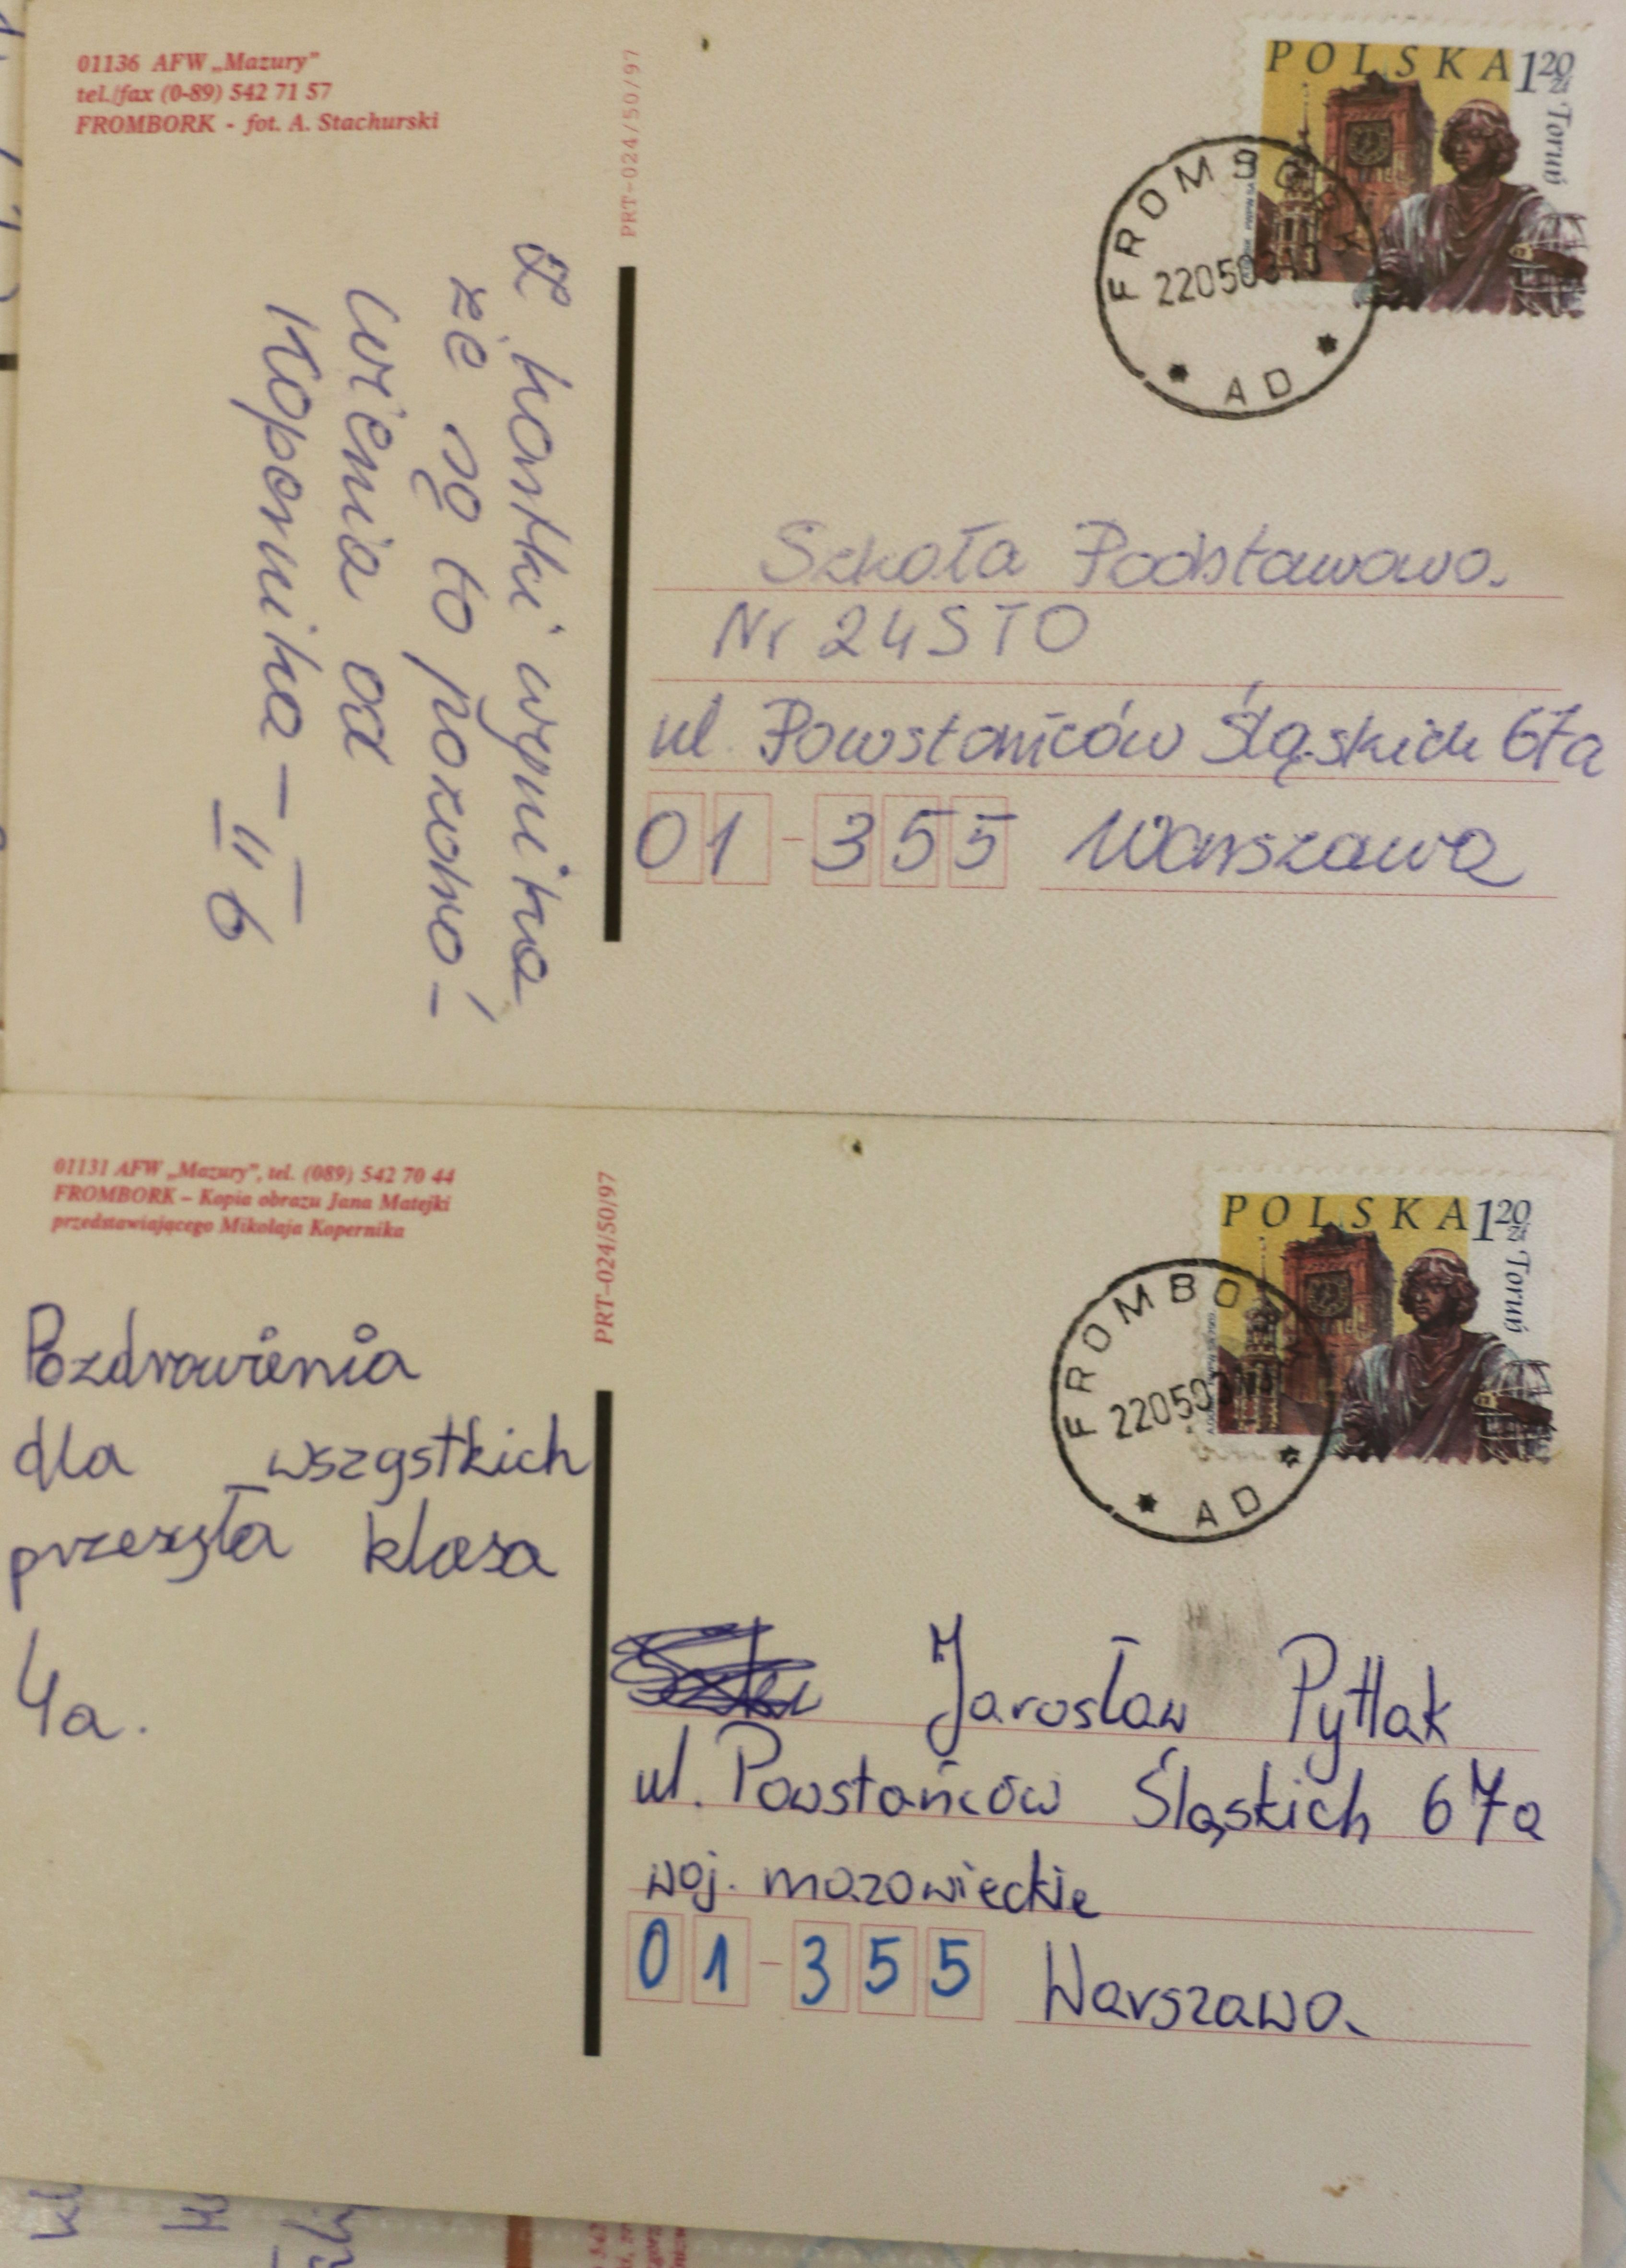 01136 AFW „Mazury”
tel./fax (0-89) 542 71 57
FROMBORK - fot. A. Stachurski
PRT-024/50/97
POLSKA 1 20 zł
Toruń
FROMBORK
220503
* AD *
Z kartki wynika
że są to pozdro-
wienia od
Kopernika –
Szkoła Podstawowa
Nr 24 STO
ul. Powstańców Śląskich 67a
01-355 Warszawa
01131 AFW „Mazury”, tel. (089) 542 70 44
FROMBORK – Kopia obrazu Jana Matejki
przedstawiającego Mikołaja Kopernika
PRT-024/50/97
POLSKA 1 20 zł
Toruń
FROMBO
220503
* AD *
Pozdrowienia
dla wszystkich
przesyła klasa
4a.
Jarosław Pytlak
ul. Powstańców Śląskich 67a
woj. mazowieckie
01-355 Warszawa